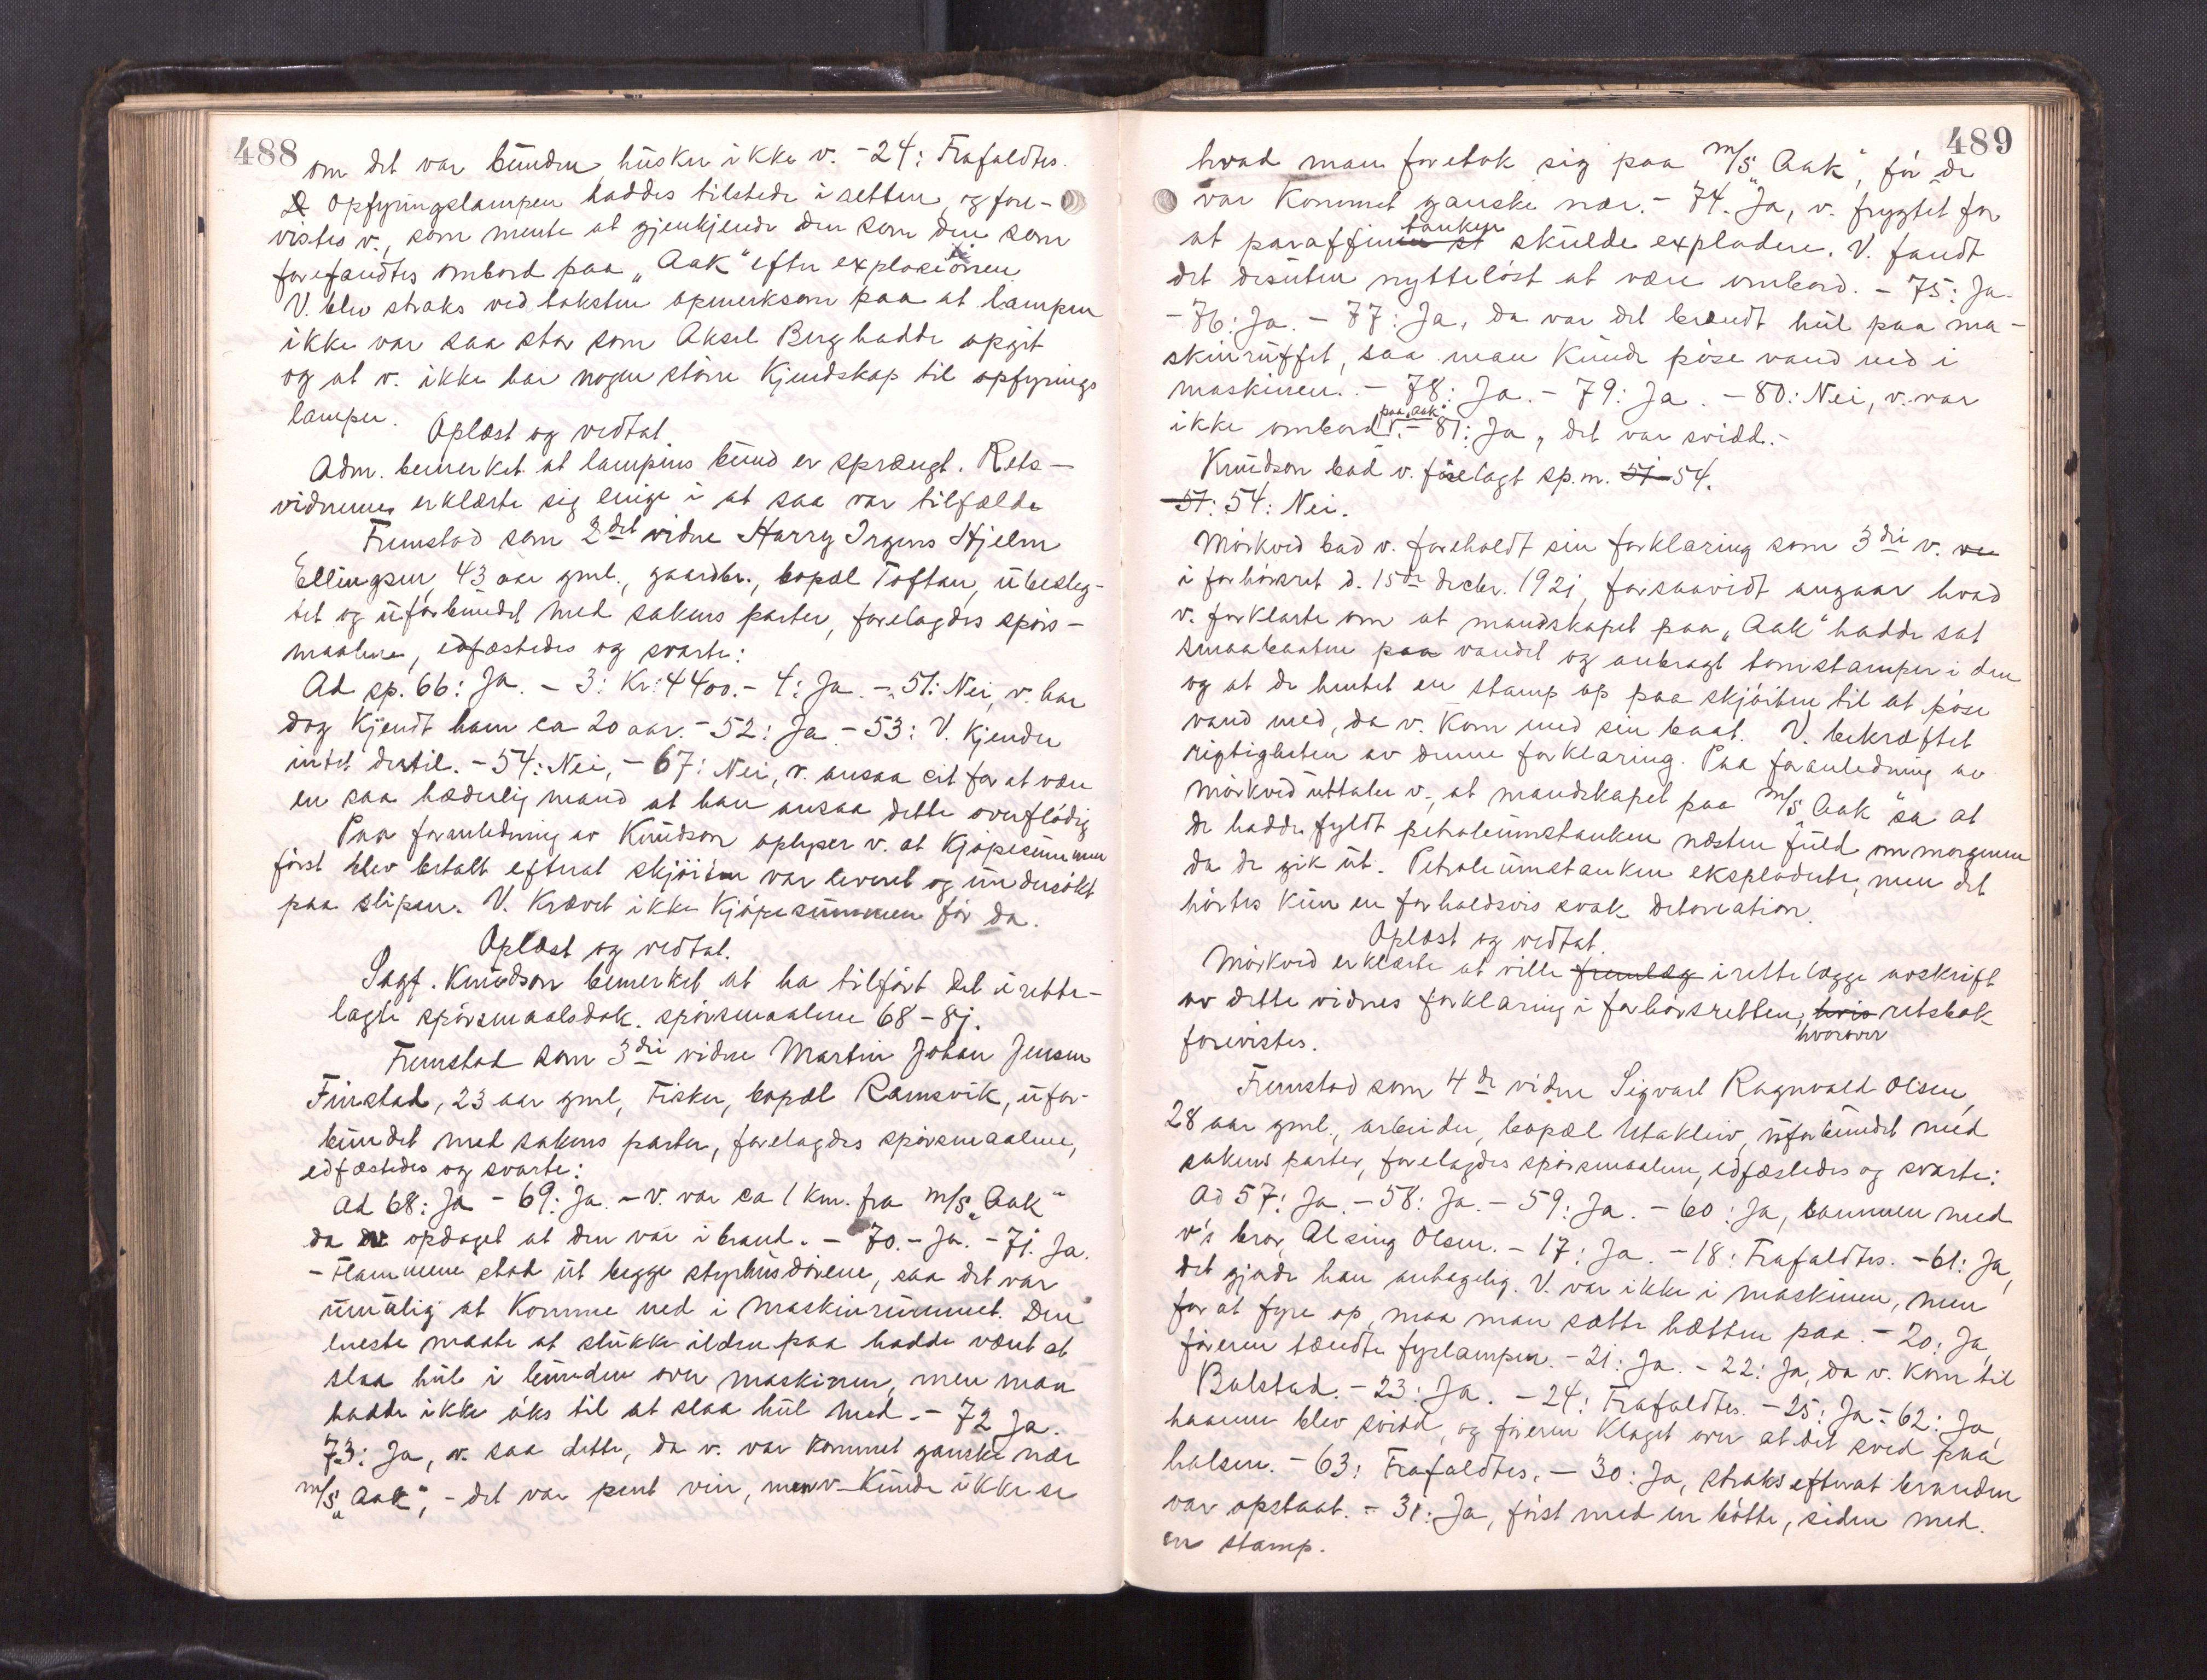 488
om det var bunden, husker ikke v. - 24: Frafaldtes.
Opfyringslampen haddes tilstede i retten, og fore-
vistes v., som mente at gjenkjende den som den som
forefandtes ombord paa „Aak" efter explosionen
V. blev straks ved taksten opmerksom paa at lampen
ikke var saa stor som Aksel Berg hadde opgit
og at v. ikke har nogen større kjendskap til opfyrings
lamper.
Oplæst og vedtat.
Adm. bemerket at lampens bund er sprængt. Rets-
vidnerne erklærte sig enige i at saa var tilfælde
Fremstod som 2det vidne Harry Irgens Hjelm
Ellingsen, 43 aar gml., gaardbr., bopæl Toftan, ubeslæg-
tet og uforbundet med sakens parter, forelagdes spørs-
maalene, edfæstedes og svarte:
Ad sp. 66: Ja. - 3: Kr: 4400.- 4: Ja. - 51: Nei, v. har
dog kjendt ham ca 20 aar. - 52: Ja. - 53: V. kjender
intet dertil. - 54: Nei, - 67: Nei, v. ansaa cit for at være
en saa hæderlig mand at han ansaa dette overflødig
Paa foranledning av Knudson oplyser v. at kjøpesummen
først blev betalt efterat skjøiten var leveret og undersøkt
paa slipen. V. krævet ikke kjøpesummen før da.
Oplæst og vedtat.
Sagf. Knudson bemerket at ha tilført det i rette-
lagte spørsmaalsdok. spørsmaalene 68-81.
Fremstod som 3die vidne Martin Johan Jensen
Finstad, 23 aar gml, Fisker, bopæl Ramsvik, ufor-
bundet med sakens parter, forelagdes spørsmaalene,
edfæstedes og svarte:
Ad 68: Ja - 69: Ja. - v. var ca 1 km. fra m/s „Aak"
da de opdaget at den var i brand. - 70. - Ja. - 71. Ja.
- Flammene stod ut begge styrhusdørene, saa det var
umulig at komme ned i maskinrummet. Den
eneste maate at slukke ilden paa hadde været at
slaa hul i bunden over maskinen, men man
hadde ikke øks til at slaa hul med. - 72 Ja.
73: Ja, v. saa dette, da v. var kommet ganske nær
m/s „Aak", - det var pent veir, men v. kunde ikke se
489
hvad man foretok sig paa m/s „Aak", før de
var kommet ganske nær. - 74. Ja, v. frygtet for
at paraffintanken skulde explodere. V. fandt
det desuten nytteløst at være ombord. - 75: Ja.
- 76: Ja. - 77: Ja, da var det brændt hul paa ma-
skinruffet, saa man kunde pøse vand ned i
maskinen. - 78: Ja. - 79: Ja. - 80: Nei, v. var
ikke ombord paa „Aak". - 81: Ja, det var svidd. -
Knudson bad v. forelagt sp.m. 51 54.
51: 54: Nei.
Mørkved bad v. foreholdt sin forklaring som 3die v.
i forhørsret d. 15de decbr. 1921, forsaavidt angaar hvad
v. forklarte om at mandskapet paa „Aak" hadde sat
smaabaaten paa vandet og anbragt tomstamper i den
og at de hentet en stamp op paa skjøiten til at pøse
vand med, da v. kom med sin baat. V. bekræftet
rigtigheten av denne forklaring. Paa foranledning av
Mørkved uttaler v., at mandskapet paa m/s „Aak" sa at
de hadde fyldt petroleumstanken næsten fuld om morgenen
da de gik ut. Petroleumstanken eksploderte, men det
hørtes kun en forholdsvis svak detonation.
Oplæst og vedtat.
Mørkved erklærte at ville fremlæg i rettelægge avskrift
av dette vidnes forklaring i forhørsretten, hvis retsbok
hvorover
forevistes.
Fremstod som 4de vidne Sigvart Ragnvald Olsen,
28 aar gml., arbeider, bopæl Utakleiv, uforbundet med
sakens parter, forelagdes spørsmaalene, edfæstedes og svarte:
Ad 57: Ja. - 58: Ja. - 59: Ja. - 60: Ja, sammen med
v's bror, Alsing Olsen. - 17: Ja. - 18: Frafaldtes. - 61: Ja,
det gjorde han antagelig. V. var ikke i maskinen, men
for at fyre op, maa man sætte hætten paa. - 20: Ja,
føreren tændte fyrlampen. - 21: Ja. - 22: Ja, da v. kom til
Balstad. - 23: Ja. - 24: Frafaldtes. - 25: Ja - 62: Ja,
haanen blev svidd, og føreren klaget over at det sved paa
halsen. - 63: Frafaldtes. - 30: Ja, straks efterat branden
var opstaat. - 31: Ja, først med en bøtte, siden med
en stamp.